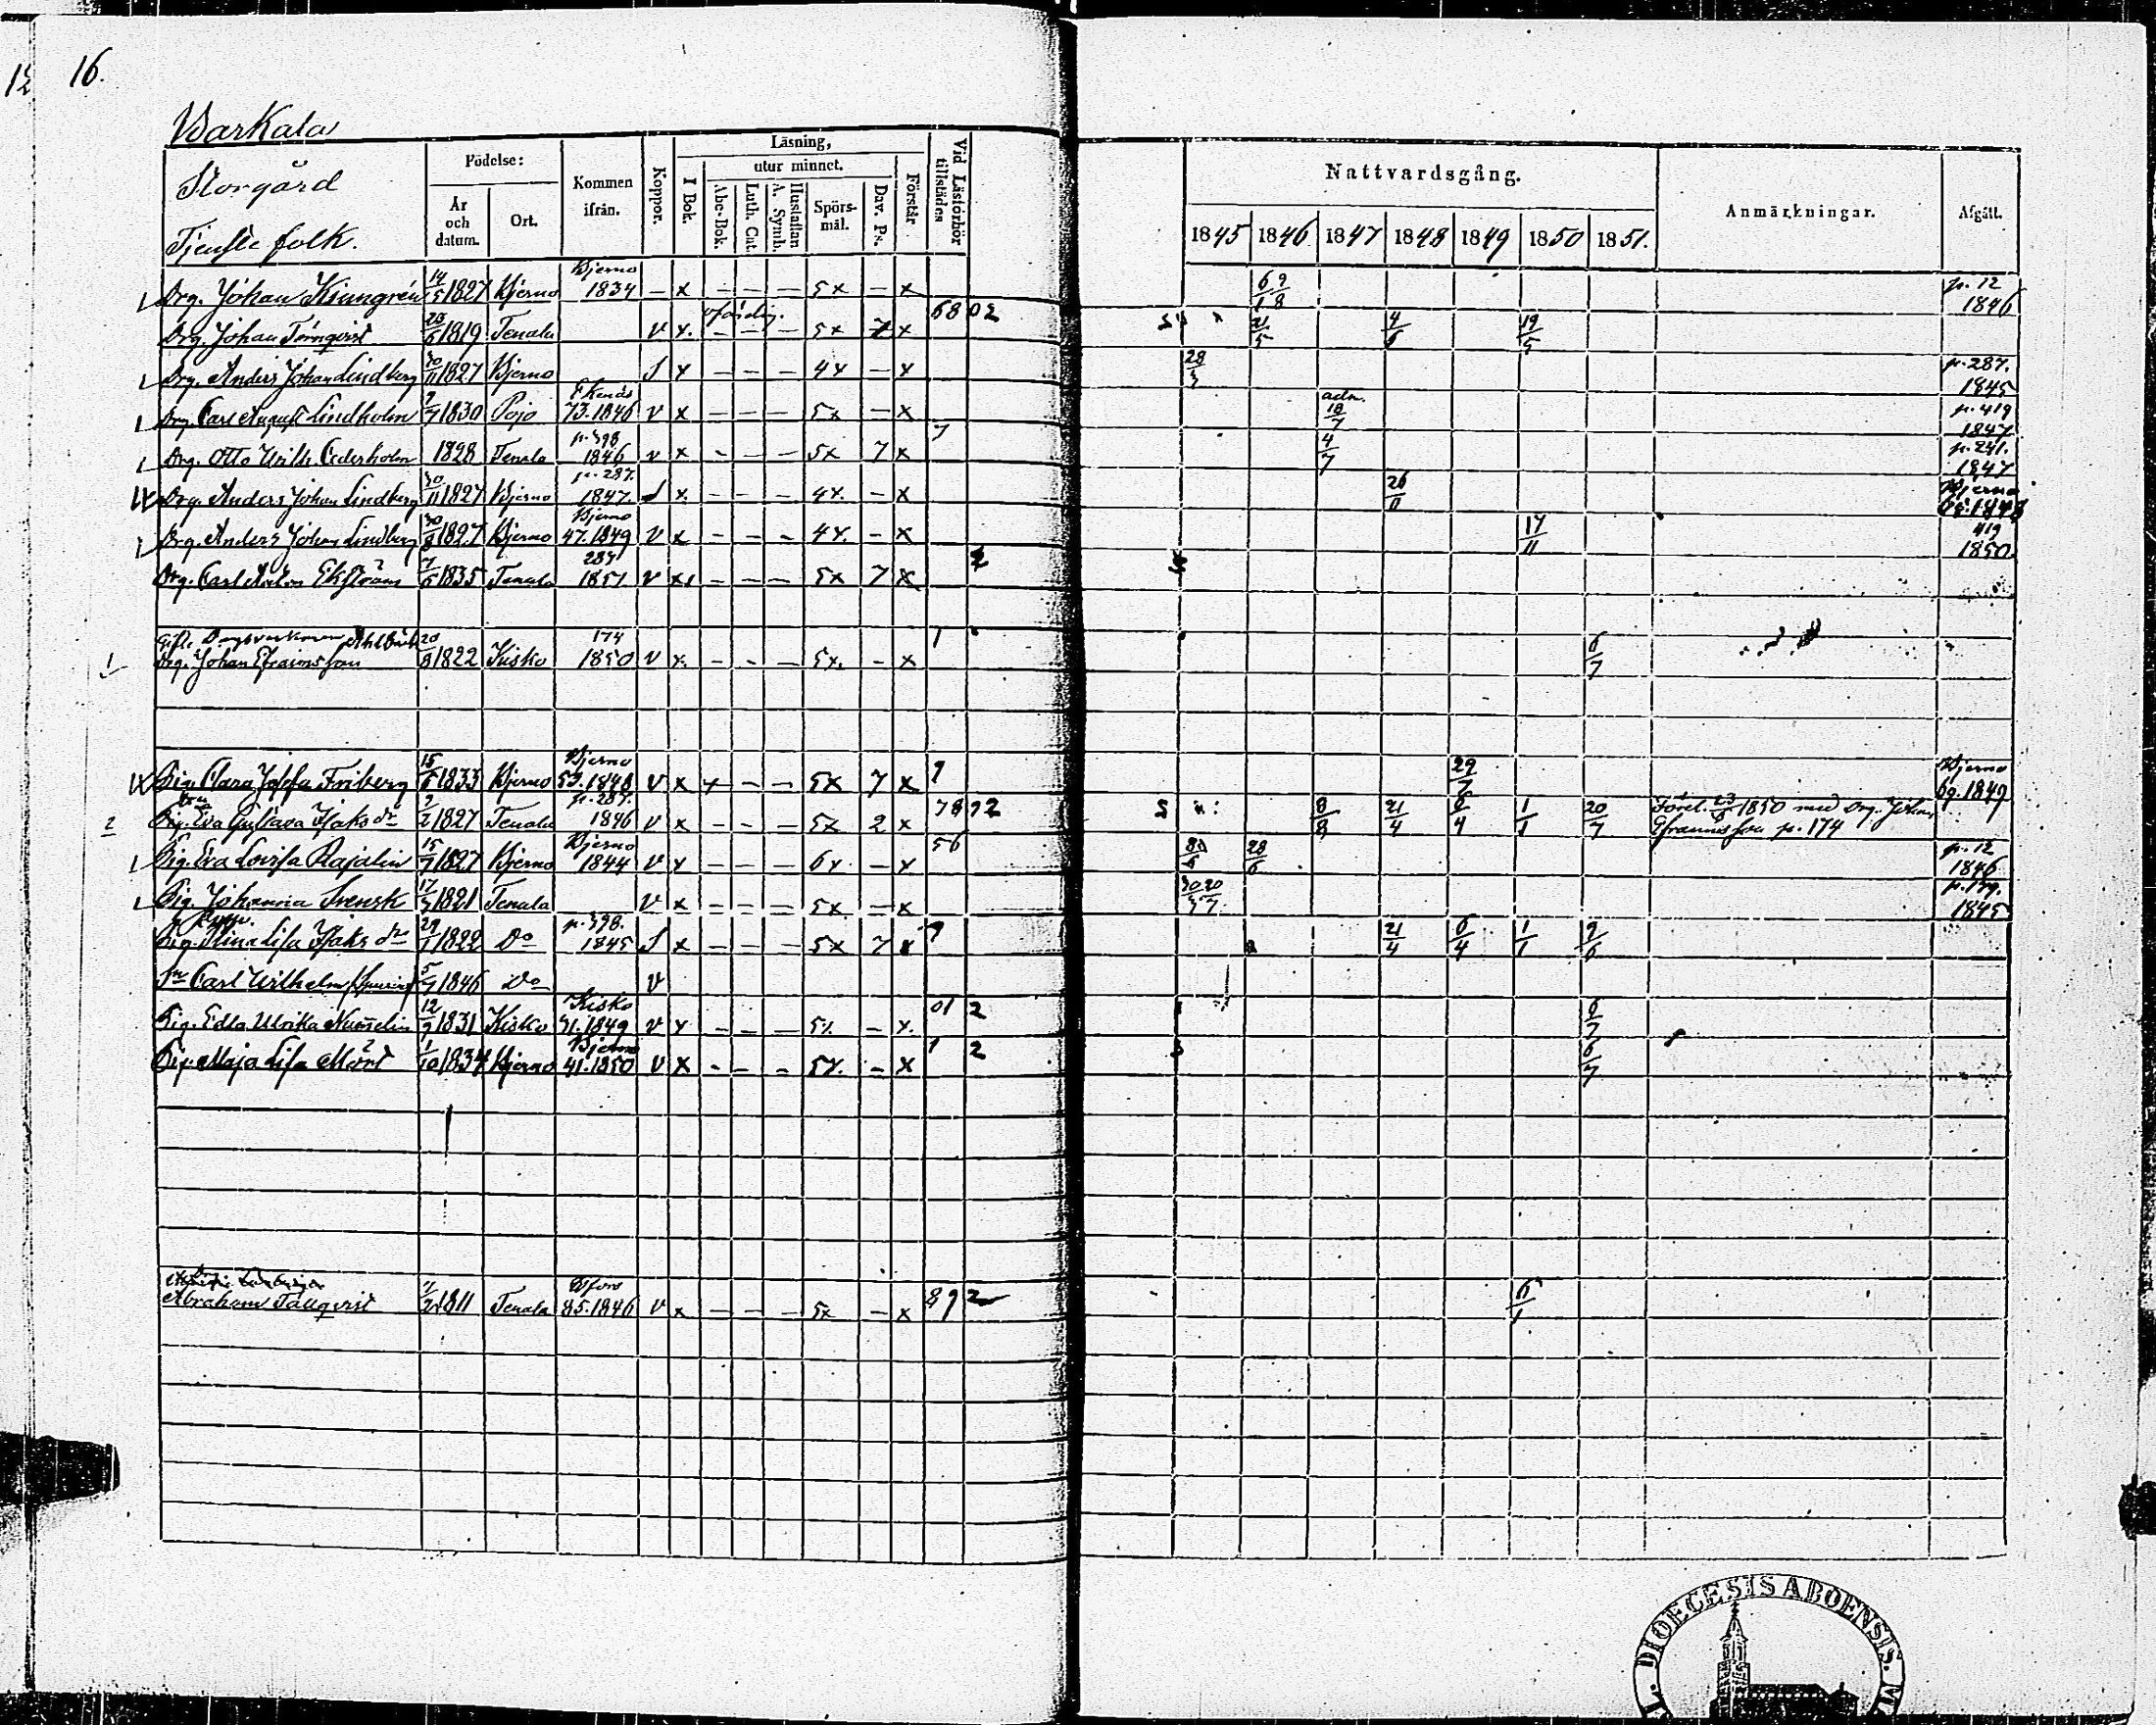 16.
Warkala
Storgård
Tjenste folk.
Födelse:
År och datum.
Ort.
Kommen ifrån.
Koppor.
Läsning,
I Bok.
utur minnet.
Abc-Bok.
Luth. Cat.
A. Symb.
Hustaflan
Spörs-mål.
Dav. Ps.
Förstår.
Vid Läsförhör tillstädes
Nattvardsgång.
1845 1846 1847 1848 1849 1850 1851.
Anmärkningar.
Afgått.
Drg. Johan 14/5 1827 Bjerno Bjerno 1834 – x – – – 5x – x p. 12 1846
Drg. Johan Törnqvist 1819 Tenala v x. – – – 5x 7 x 6802 21/5 4/6 19/5
Drg. Anders Johan Lindberg 30/11 1827 Bjerno S x – – – 4x – x 28/3 p. 287. 1845
Drg. Carl August Lindholm 9/7 1830 Pojo Ekenäs 73. 1846 v x – – – 5x – x adm. 18/7 p. 419 1847
Drg. Otto Wilh. Cederholm 1828 Tenala p. 398 1846 v x – – – 5x 7 x 7 4/7 p. 241. 1847
Drg. Anders Johan Lindberg 30/11 1827 Bjerno p. 287. 1847. S x. – – – 4x. – x 26/11 Bjerno
Drg. Anders Johan Lindberg 1827 Bjerno Bjerno 47. 1849 v x – – – 4x. – x 17/11 419 1850
Drg. Carl Anton Ekström 7/6 1835 Tenala 287 1851 v x – – – 5x 7 x 2
Gift. Dagsverkaren
Drg. Johan Efraimsson 20/8 1822 Kisko 174 1850 v x. – – – 5x. – x 1 6/7
Pig. Clara Friberg 15/6 1833 Bjerno Bjerno 53. 1848 v x x – – 5x 7 x 9 29/7 Bjerno bg. 1849
Pig. Eva Gustava Isaks dr 9/2 1827 Tenala p. 287. 1846 v x – – – 5x 2 x 7892 8/8 21/4 6/4 1/1 20/7 Förel. 1850 med Drg. Johan
Efraimsson p. 174
Pig. Eva Lovisa Rajalin 15/7 1827 Bjerno Bjerno 1844 v x – – – 6x – x 56 28/6 p. 12 1846
Pig. Johanna Svensk 1821 Tenala v x – – – 5x – x p. 179. 1845
Pig. Stina Lisa Isaks dr 29/1 1822 Do p. 398. 1845 S x – – – 5x 7 x 9 21/4 6/4 1/1 9/6
Sn Carl Wilhelm 5/7 1846 Do v
Pig. Edla Ulrika 12/9 1831 Kisko Kisko 31. 1849 v x – – – 5x. – x. 01 2 6/7
Pig. Maja Lisa Mört 1/10 1834 Bjerno Bjerno 41. 1850 v x – – – 5x. – x 1 2 6/7
Abraham Tallqvist 1811 Tenala 85. 1846 v x – – – 5x – x 892 6/1
DIOECESIS ABOENSIS.